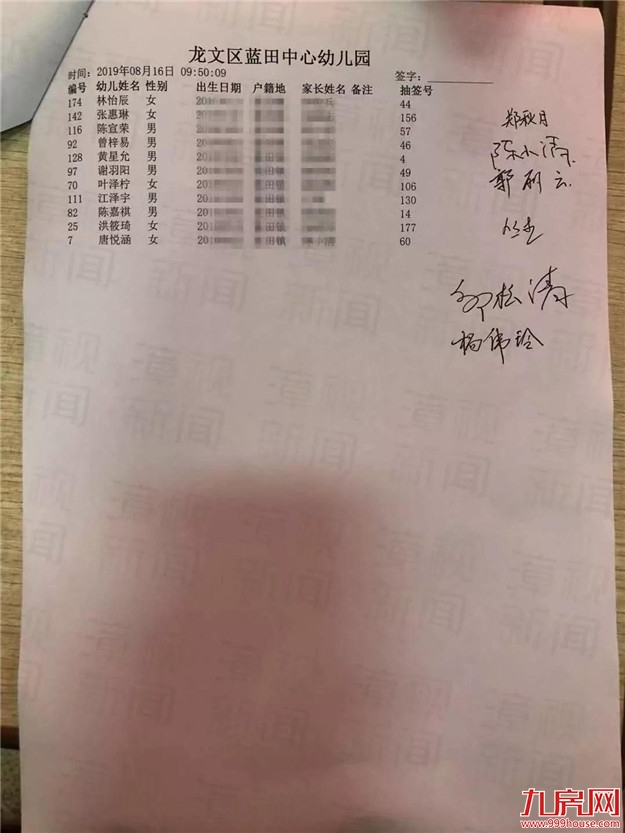 龙文区蓝田中心幼儿园
时间： 2019年08月16日 09:50:09 签字：
编号 幼儿姓名 性别 出生日期 户籍地 家长姓名 备注 抽签号
174 林怡辰 女 201 44
142 张惠琳 女 201 156
116 陈宣荣 男 201 57
92 曾梓易 男 201 46
128 黄星允 男 201 田镇 4
97 谢羽阳 男 201 田镇 49
70 叶泽柠 女 201 田镇 106
111 江泽宇 男 201 田镇 130
82 陈嘉祺 男 201 田镇 14
25 洪筱琦 女 201 田镇 177
7 唐悦涵 女 201 田镇 60
郑秋月
陈小清
郭丽云
杨伟玲
漳视
新闻
九房网
www.999house.com